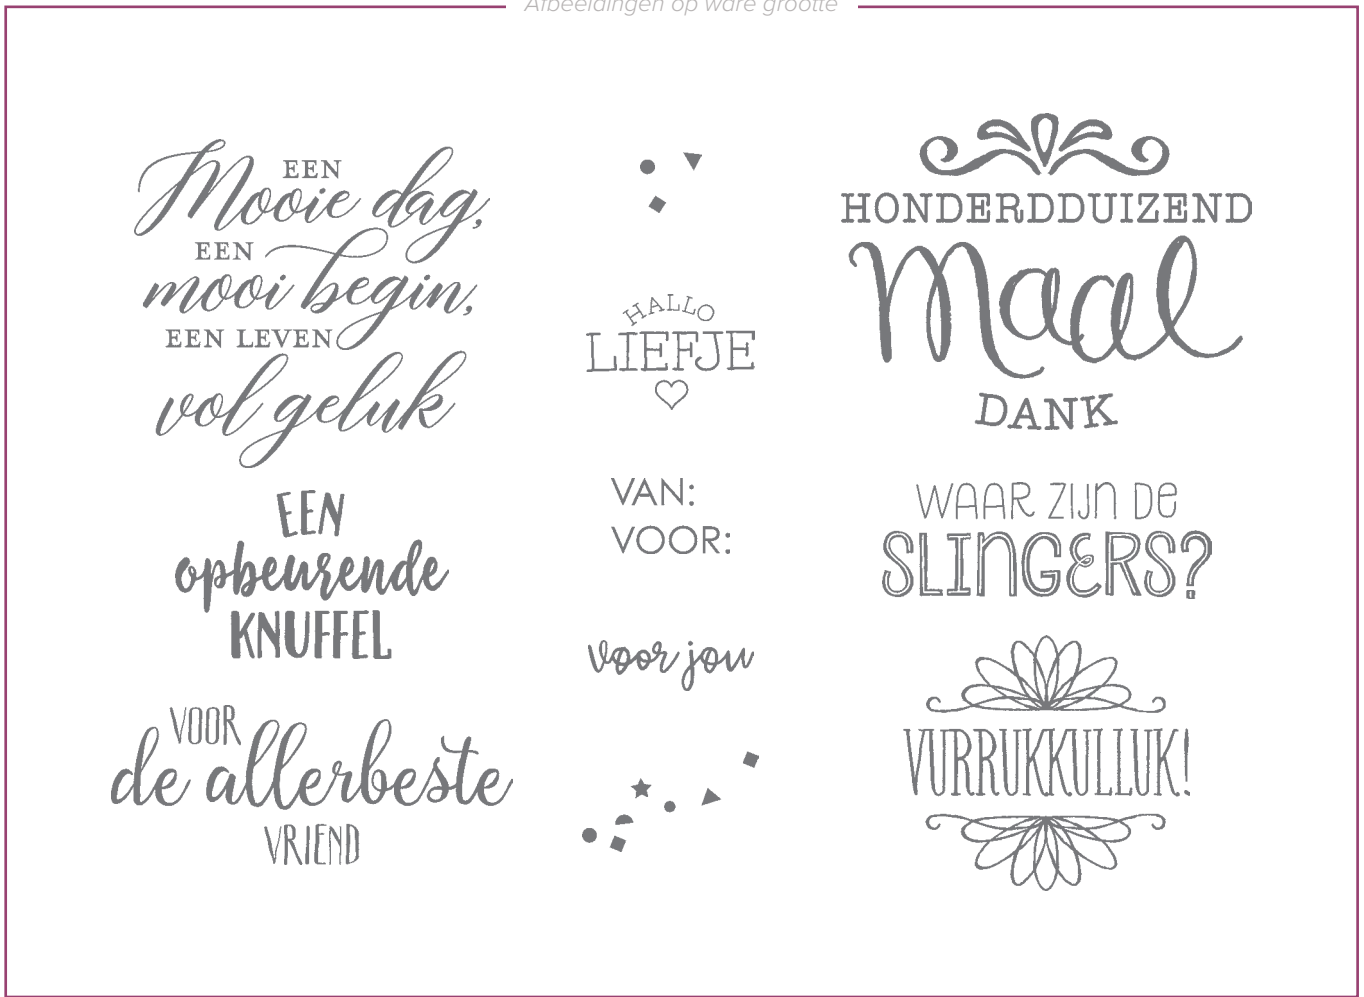 Afbeeldingen op ware grootte
EEN
Mooie dag,
EEN
mooi begin,
EEN LEVEN
vol geluk
EEN
opbeurende
KNUFFEL
VOOR
de allerbeste
VRIEND
HALLO
LIEFJE
VAN:
VOOR:
voor jou
HONDERDDUIZEND
Maal
DANK
WAAR ZIJN DE
SLINGERS?
VURRUKKULLUK!